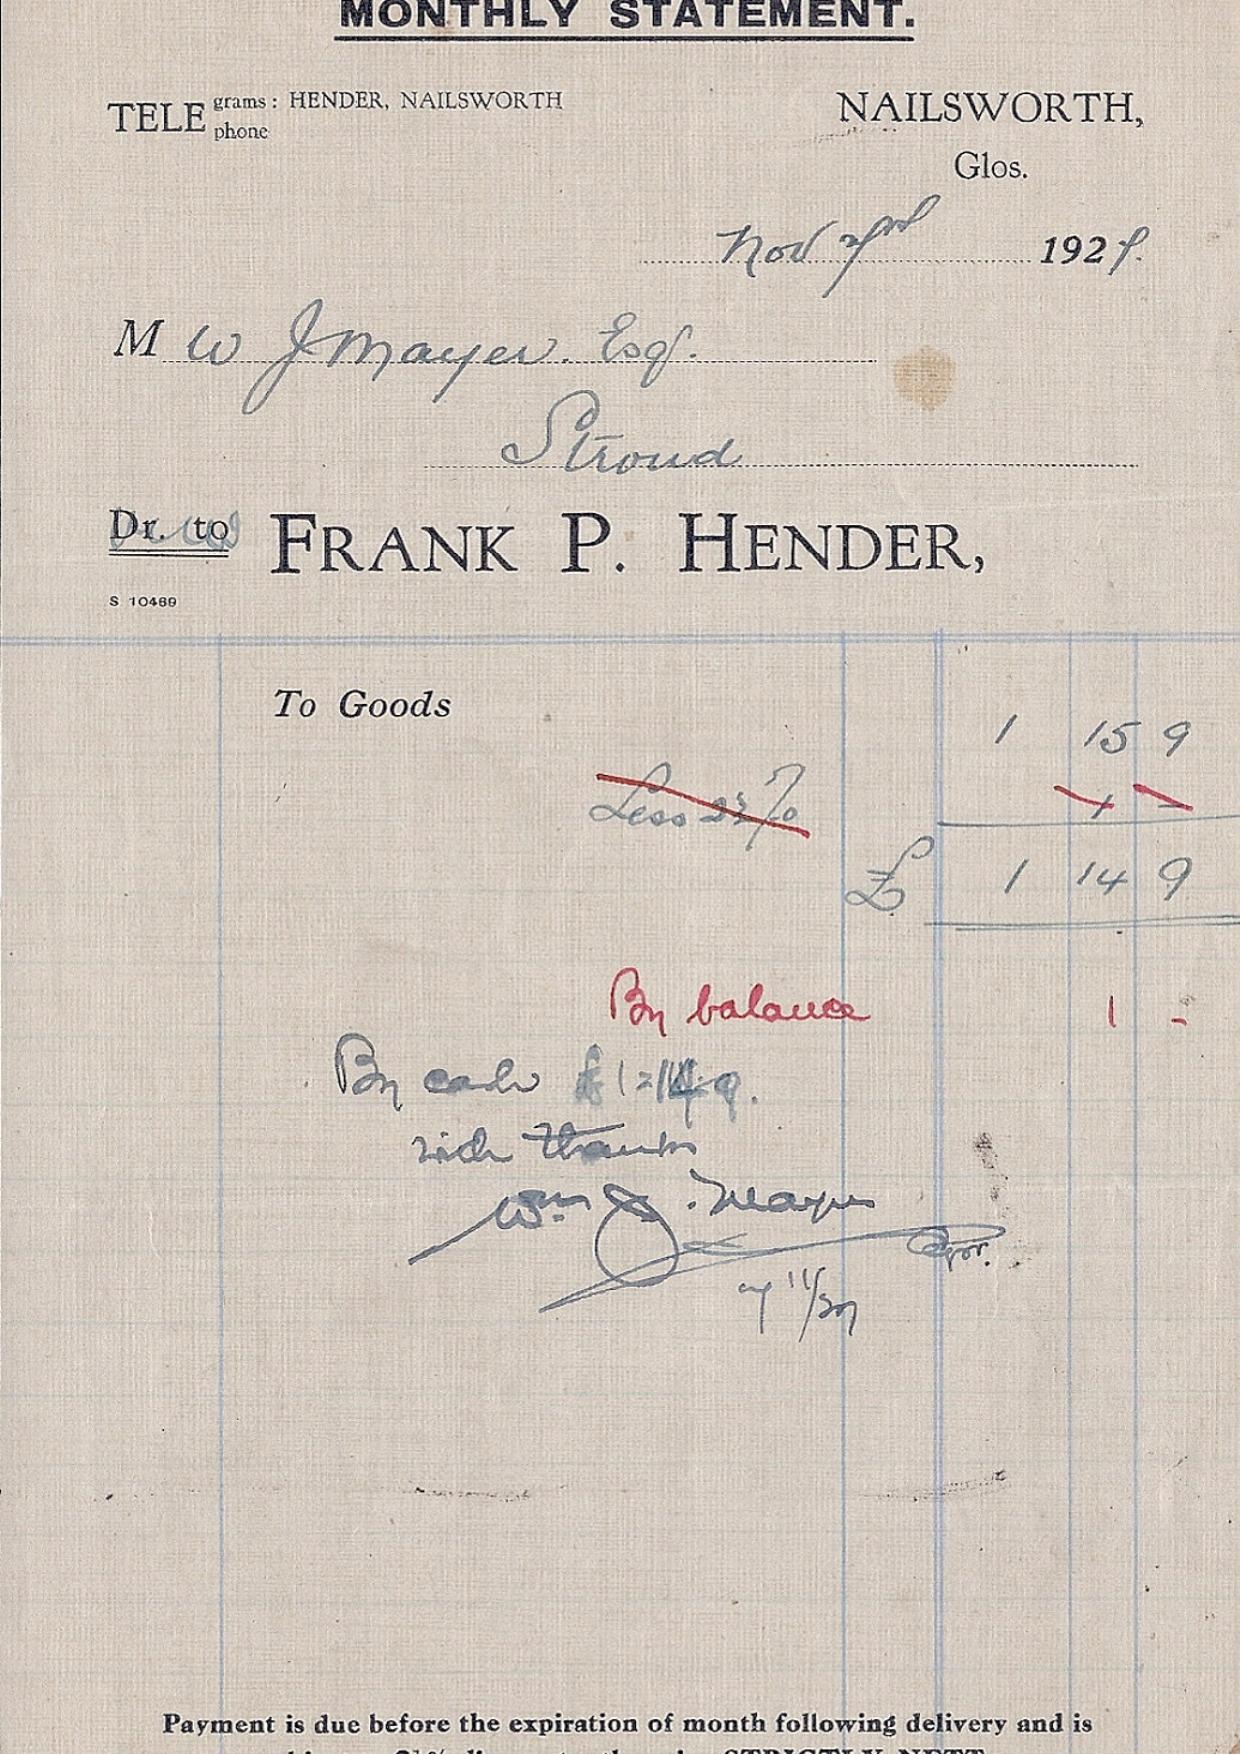 MONTHLY STATEMENT.
TELE grams: HENDER, NAILSWORTH
phone
NAILSWORTH,
Glos.
Nov 192
M W J Mayer. Esq.
Stroud
Dr. to FRANK P. HENDER,
S 10469
To Goods 1 15 9
Less 2½%
£ 1 14 9
By balance 1 -
By cash £1=14 9.
with thanks
Wm J. Mayer
Payment is due before the expiration of month following delivery and is
STRICTLY NETT